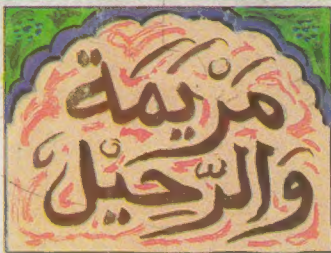 مَرْيَمَة
وَالرَّحِيْل